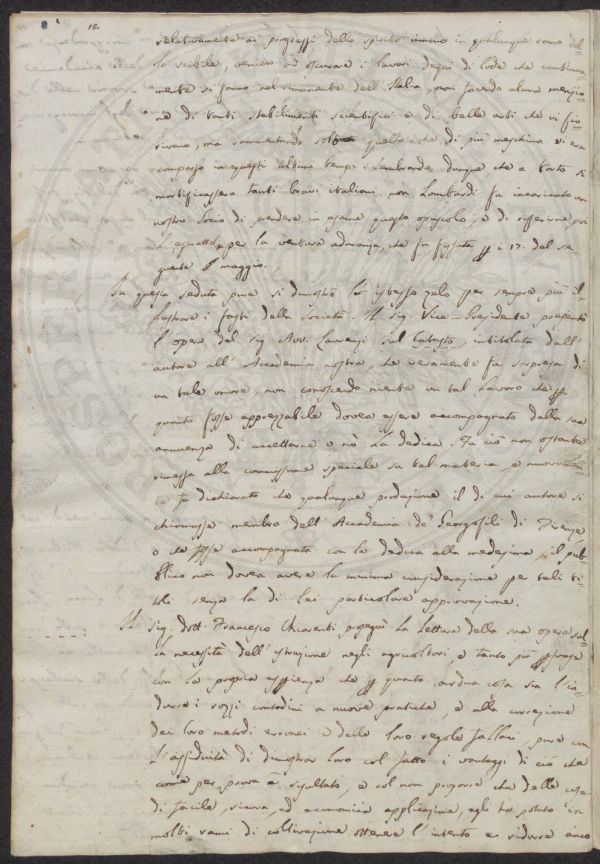 12
relativamente ai progressi dello spirito umano in qualunque ramo del-
lo scibile, veniva ad oscurare i lavori degni di lode che continua
mente si fanno nel rimanente dell'Italia, non facendo alcuna menzio-
ne di tanti stabilimenti scientifici e di belle arti che vi fio-
rivano, ma rammentando quello che di più meschino vi era
comparso in questi ultimi tempi: sembrando dunque che a torto si
mortificassero tanti bravi italiani non Lombardi fu incaricato un
nostro Socio di prendere in esame questo opuscolo, e di riferirne poi
l'estratto per la ventura adunanza, che fu fissata p i 17. del se-
guente maggio.
In questa seduta pure si dimostrò lo istesso zelo per sempre più il-
lustrare i fasti della Società. Il Sig. Vice-Presidente presentò
l'opera del Sig. Avv. sul Catasto, intitolata dall'
autore all'Accademia nostra, che veramente fu sorpresa di
un tale onore, non conoscendo niente un tal lavoro che p
quanto fosse apprezzabile dovea essere accompagnato dalla sua
annuenza di accettarne o nò la dedica. Fu ciò non ostante
rimessa alla commissione speciale su tal materia, e nuovamen
te fu dichiarato che qualunque produzione il di cui autore si
chiamasse membro dell'Accademia de' Georgofili di Firenze
o che fosse accompagnata con la dedica alla medesima il pub-
blico non dovea avere la minima considerazione per tali ti-
toli senza la di lei particolare approvazione.
Il Sig. Dott. Francesco Chiarenti proseguì la lettura della sua opera sul-
la necessità dell'istruzione negli agricoltori, e tanto più
con la propria esperienza che p quanto ardua cosa sia l'in-
durre i rozzi contadini a nuove pratiche, e alla correzione
dei loro metodi erronei e delle loro regole fallaci, pure con
l'assiduità di dimostrar loro col fatto i vantaggi di ciò che
come per prova è resultato, e col non proporre che delle cose
di facile, sicura, ed economica applicazione, egli ha potuto in
molti rami di coltivazione ottenere l'intento e ridurre anco